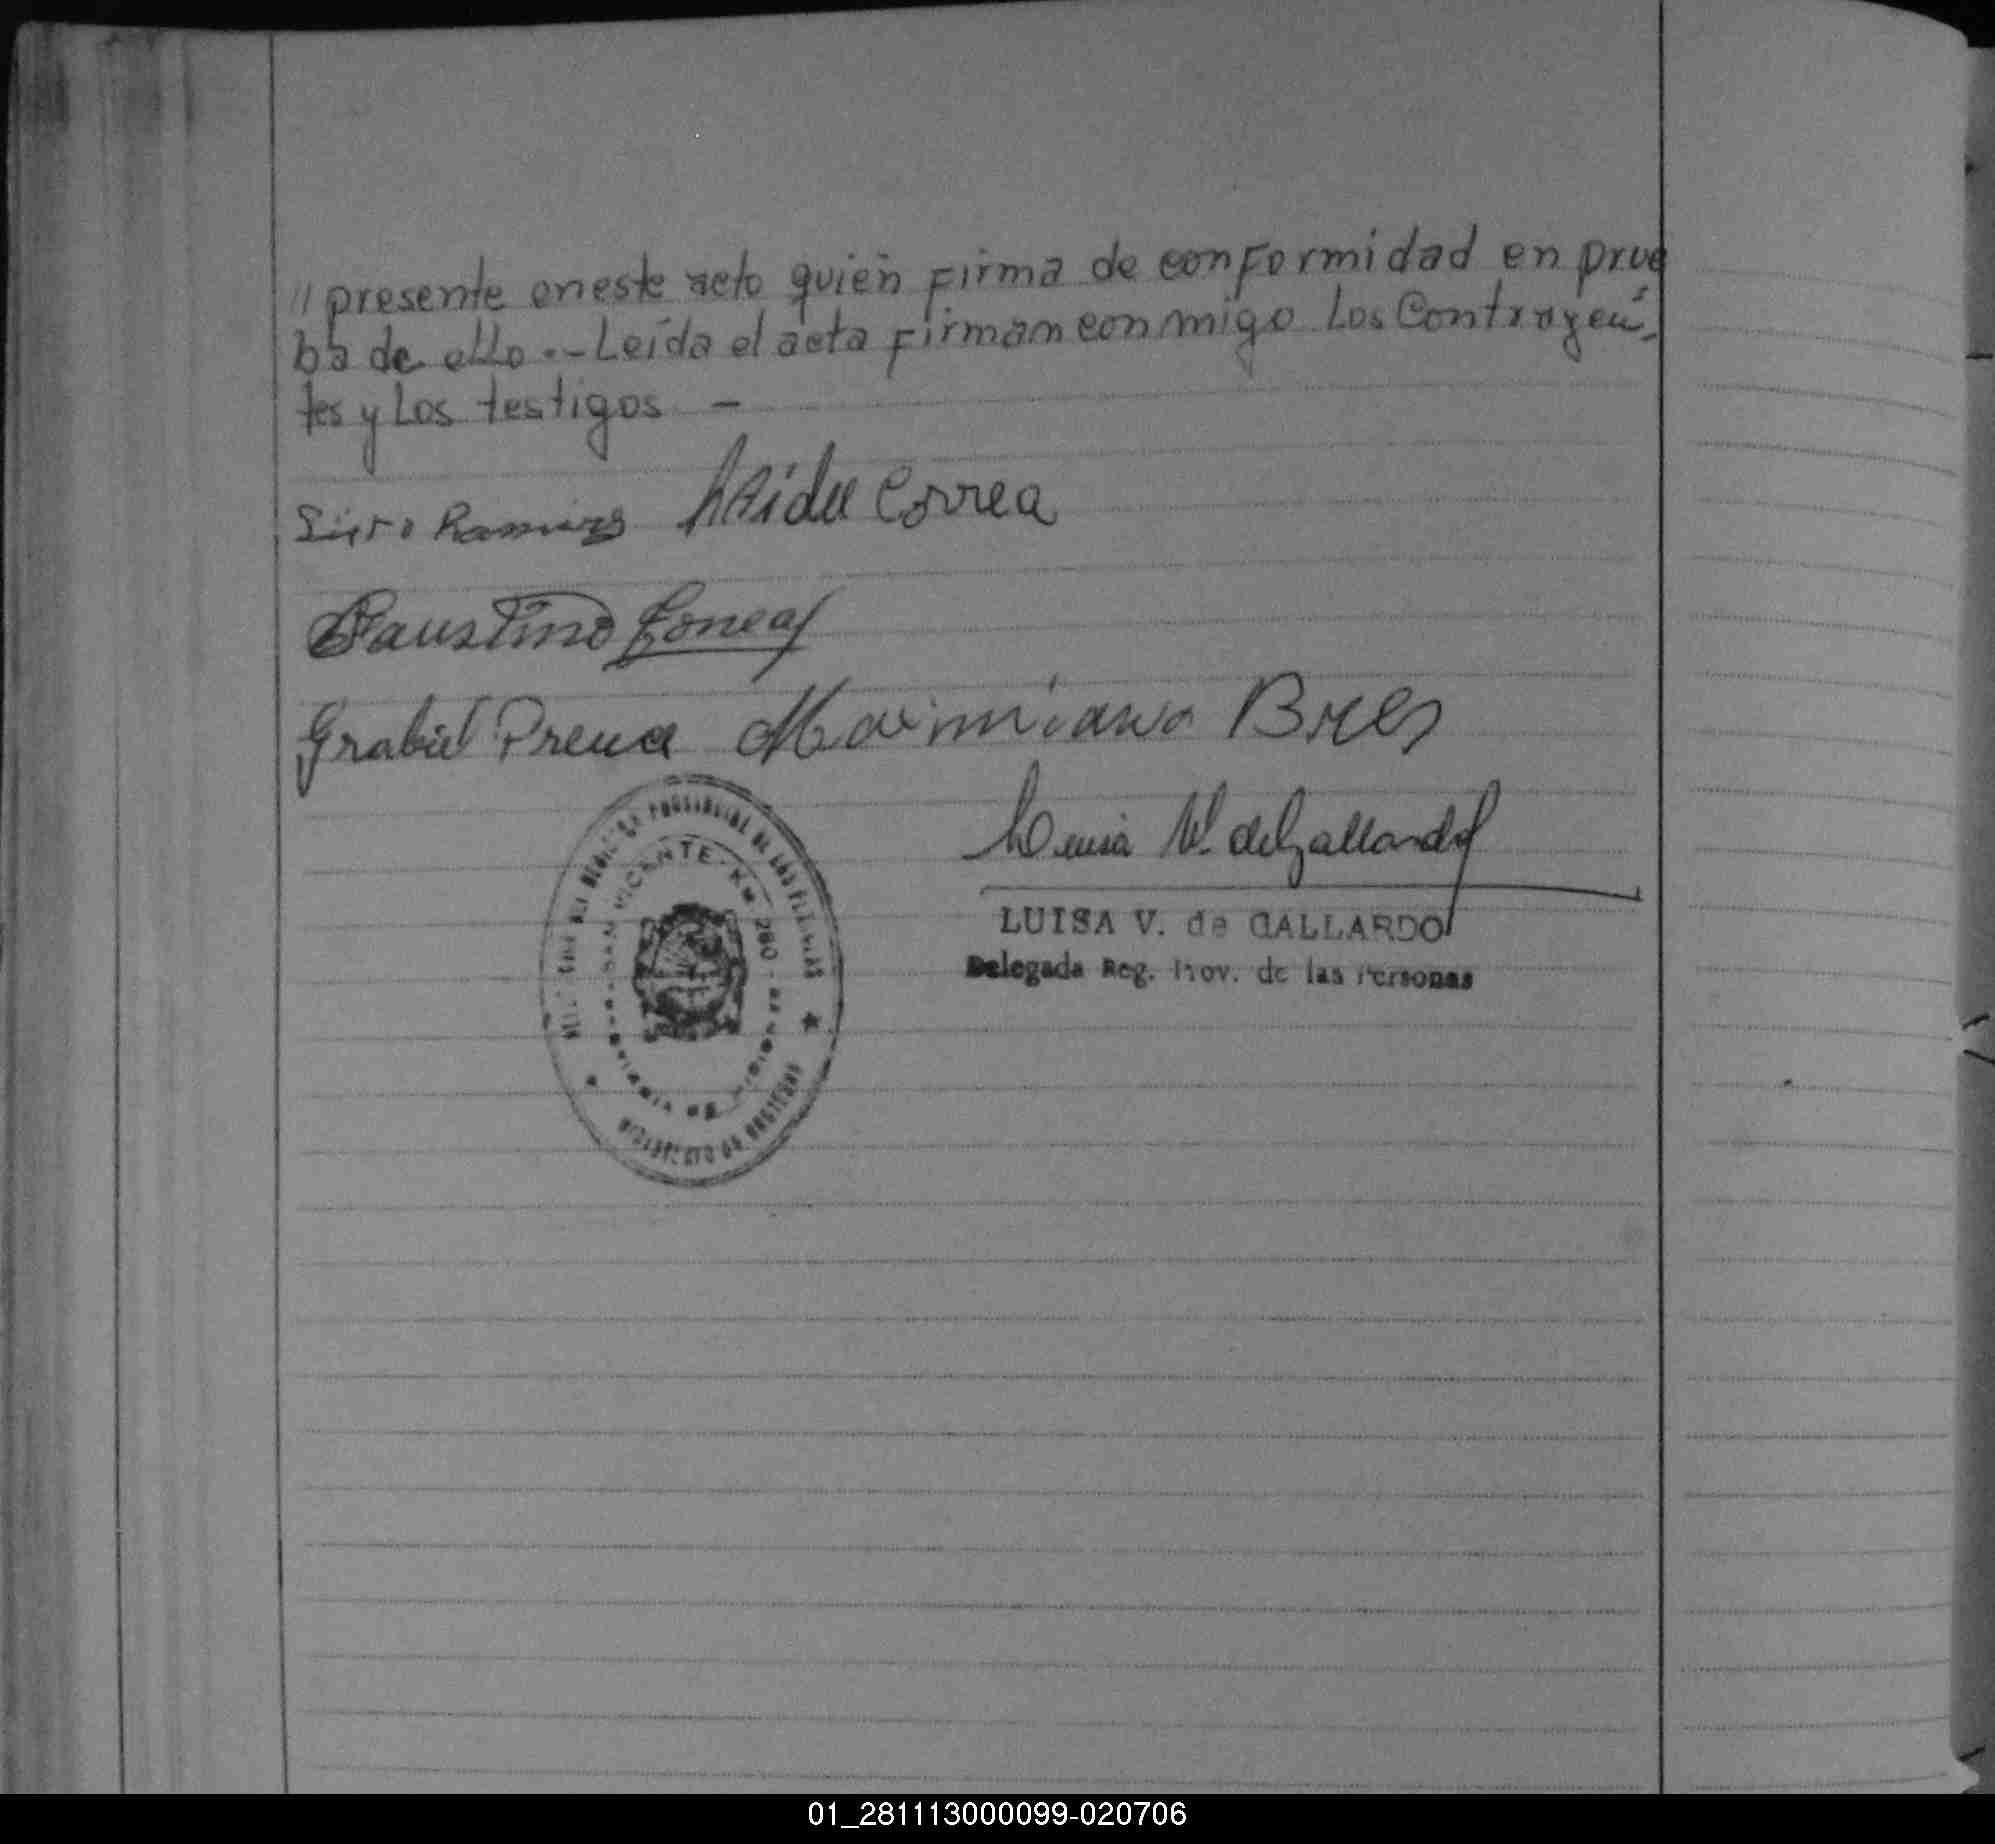 // presente en este acto quien firma de conformidad en prue
ba de ello.- Leída el acta firman con migo Los Contrayen-
tes y Los testigos -
Ramirez Haidee Correa
Faustino
Grabiel Maximiano
Luisa V. de Gallardo
LUISA V. de GALLARDO
Delegada Reg. Prov. de las Personas
PROVINCIAL DE LAS PERSONAS
SAN VICENTE - Km. 280
01_281113000099-020706